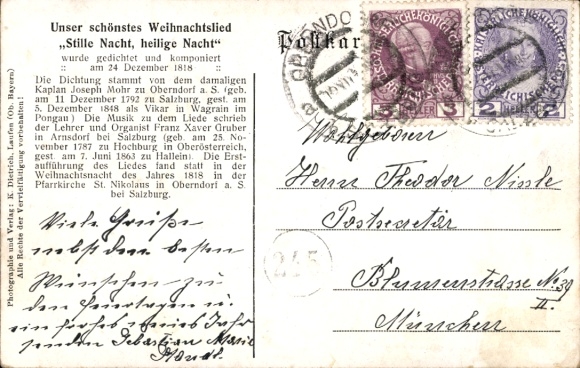 Unser schönstes Weihnachtslied
„Stille Nacht, heilige Nacht"
wurde gedichtet und komponiert
:: am 24 Dezember 1818 ::
Die Dichtung stammt von dem damaligen
Kaplan Joseph Mohr zu Oberndorf a. S. (geb.
am 11 Dezember 1792 zu Salzburg, gest. am
5. Dezember 1848 als Vikar in Wagrain im
Pongau) Die Musik zu dem Liede schrieb
der Lehrer und Organist Franz Xaver Gruber
in Arnsdorf bei Salzburg (geb. am 25. No-
vember 1787 zu Hochburg in Oberösterreich,
gest am 7. Juni 1863 zu Hallein). Die Erst-
aufführung des Liedes fand statt in der
Weihnachtsnacht des Jahres 1818 in der
Pfarrkirche St. Nikolaus in Oberndorf a. S.
bei Salzburg.
Photographie und Verlag: K. Dietrich, Laufen (Ob. Bayern)
Alle Rechte der Vervielfältigung vorbehalten!
Viele Grüße
nebst den besten
Wünschen zu
den Feiertagen u.
ein frohes neues Jahr
senden Sebastian Marie
Postkar
3 HELLER 3
2 HELLER 2
Wohlgeboren
Herrn Theodor Nissle
Postsecretär
Blumenstrasse No 39
II.
München
245